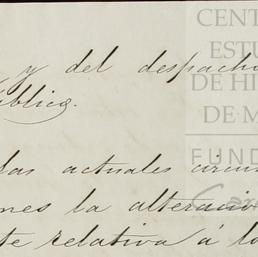 y del despacho
ública.
las actuales circun
nes la alteració
te relativa á lo
CENT
ESTU
DE HI
DE M
FUND
Car